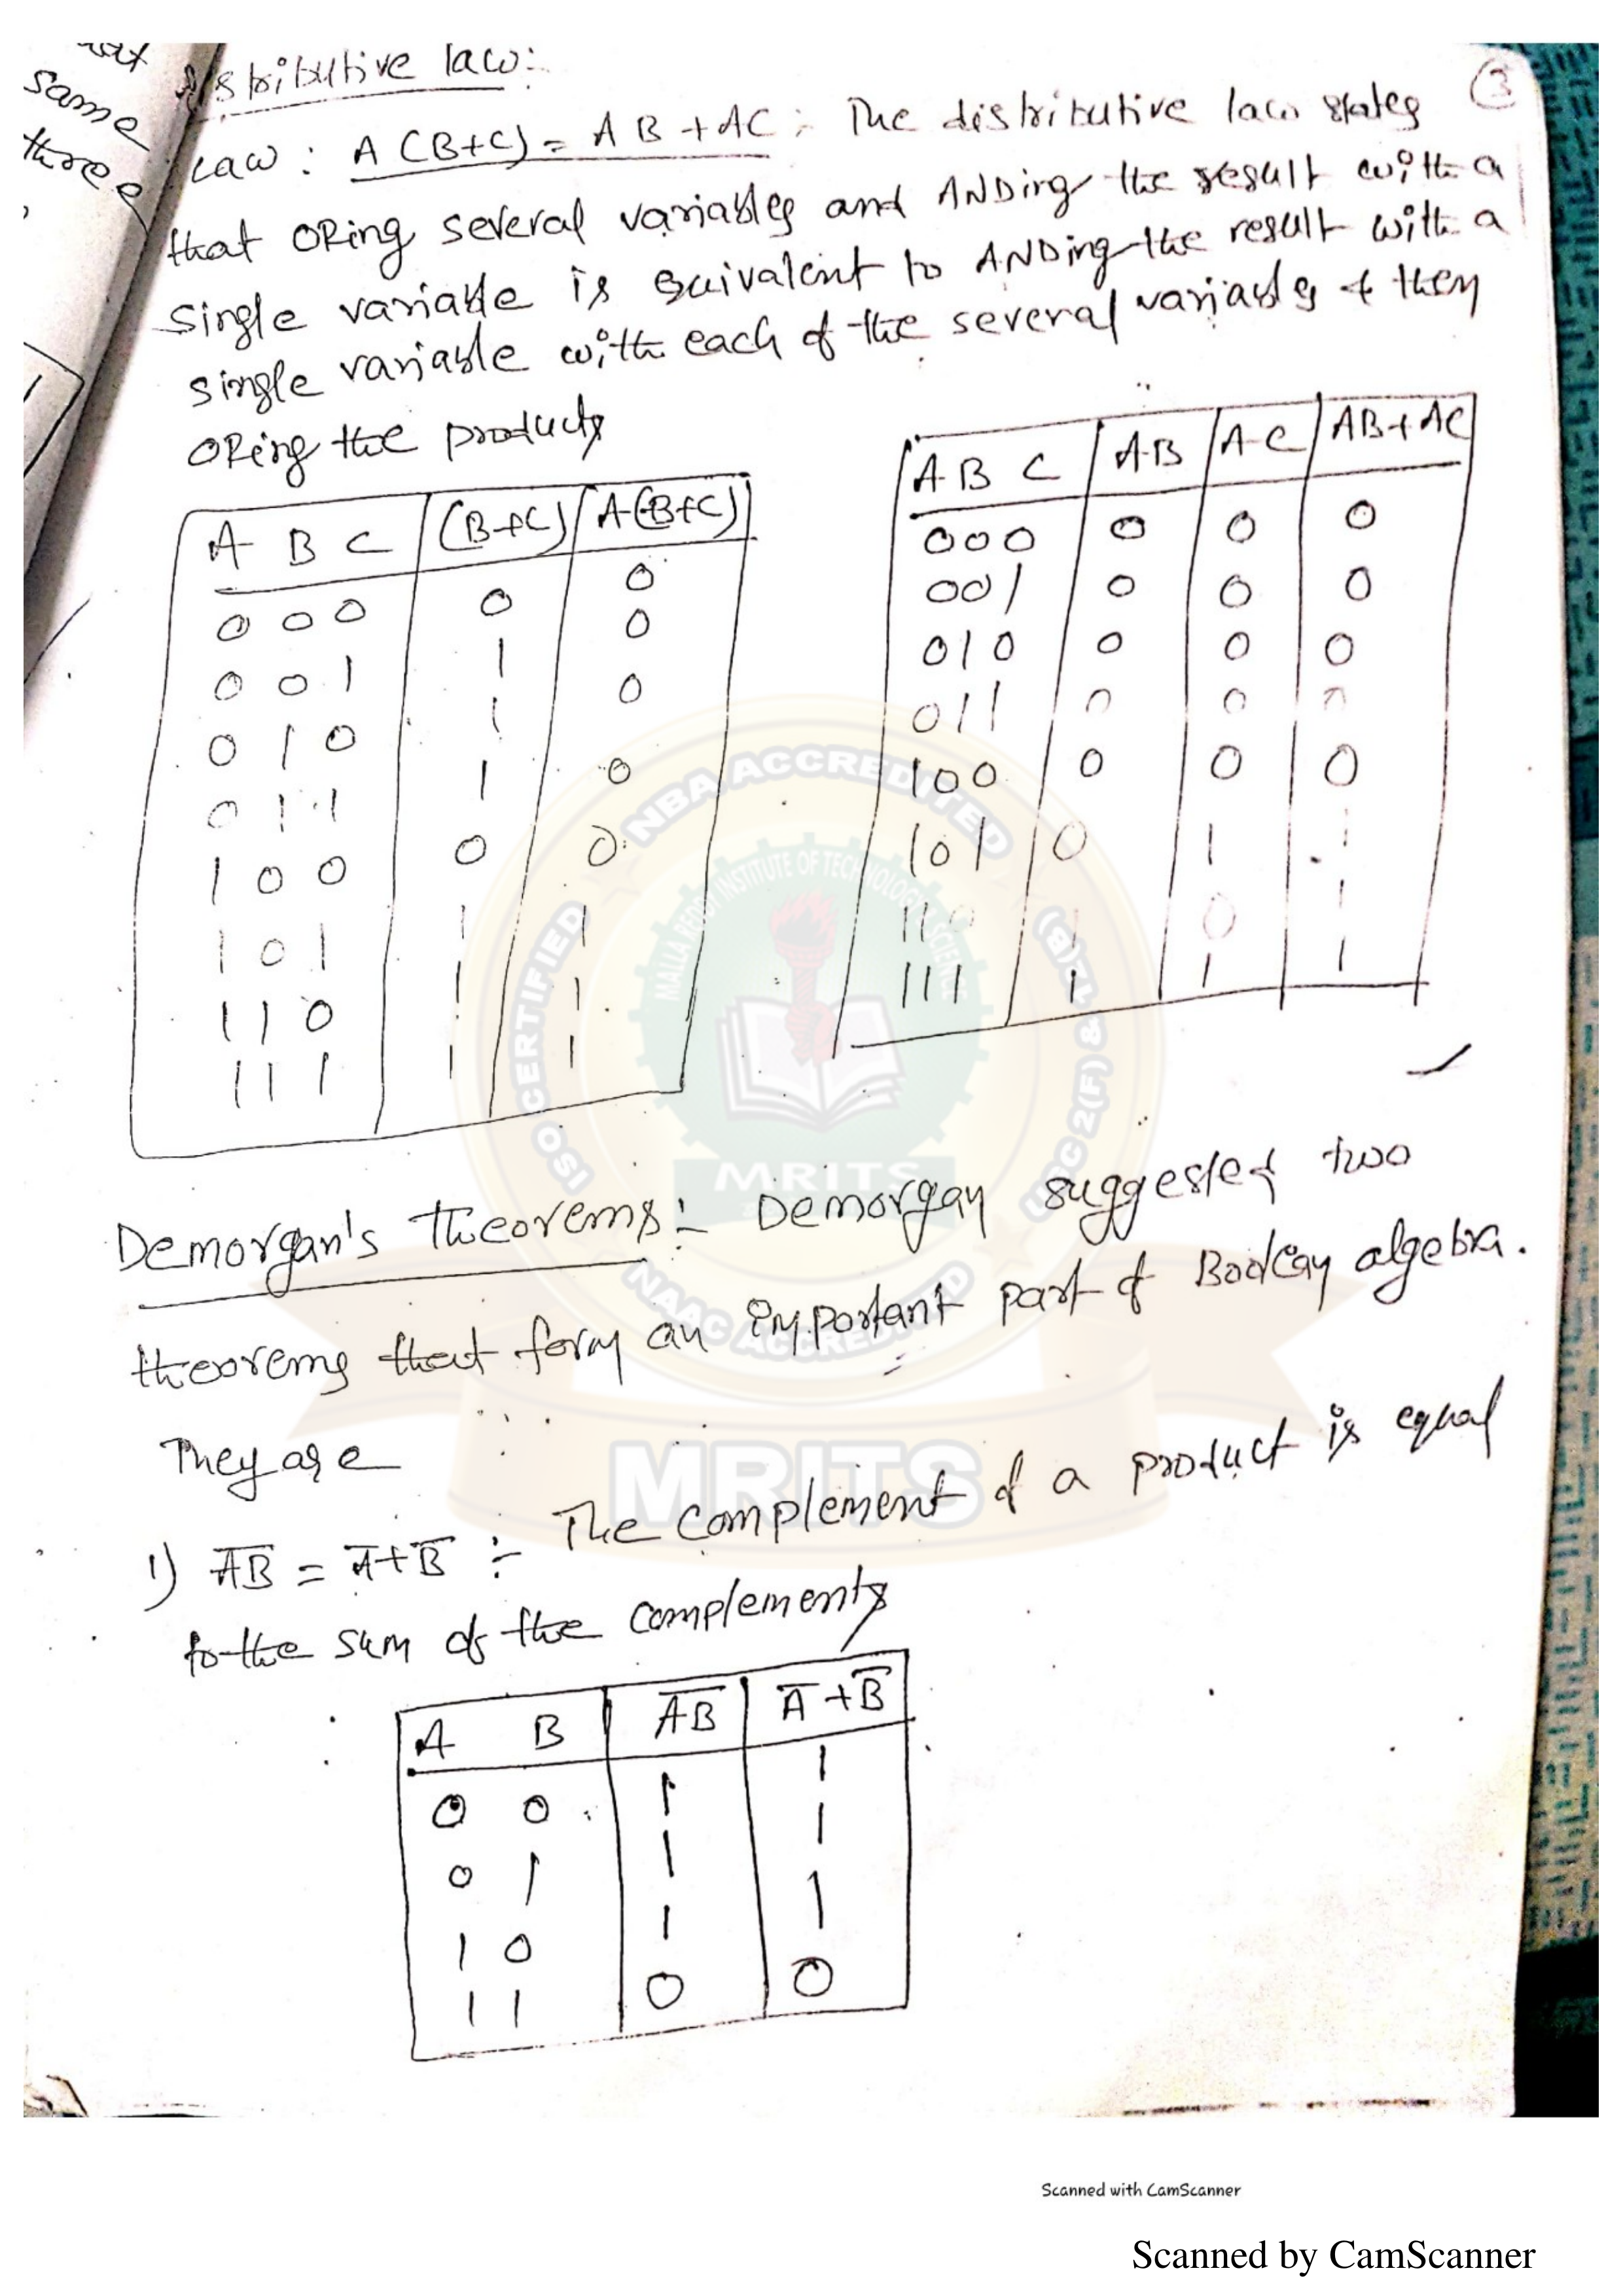 same
three
distributive law:-
③
Law : A (B+C) = AB + AC :- The distributive law states
that ORing several variables and ANDing the result with a
single variable is equivalent to ANDing the result with a
single variable with each of the several variables & then
ORing the products
A B C (B+C) A·(B+C)
0 0 0 0 0
0 0 1 1 0
0 1 0 1 0
0 1 1 1 0
1 0 0 0 0
1 0 1 1 1
1 1 0 1 1
1 1 1 1 1
A B C A·B A·C AB+AC
0 0 0 0 0 0
0 0 1 0 0 0
0 1 0 0 0 0
0 1 1 0 0 0
1 0 0 0 0 0
1 0 1 0 1 1
1 1 0 1 0 1
1 1 1 1 1 1
Demorgan's theorems:- Demorgan suggested two
theorems that form an important part of Boolean algebra.
They are
1) A̅B̅ = A̅+B̅ :- The complement of a product is equal
to the sum of the complements
A B A̅B̅ A̅+B̅
0 0 1 1
0 1 1 1
1 0 1 1
1 1 0 0
NBA ACCREDITED
ISO CERTIFIED
UGC 2(F) & 12(B)
NAAC ACCREDITED
MALLA REDDY INSTITUTE OF TECHNOLOGY & SCIENCE
MRITS
MRITS
Scanned with CamScanner
Scanned by CamScanner